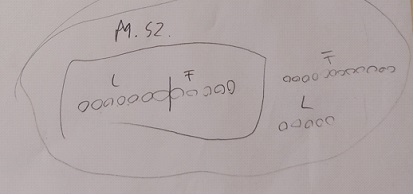 M. S2.
L F
F
L